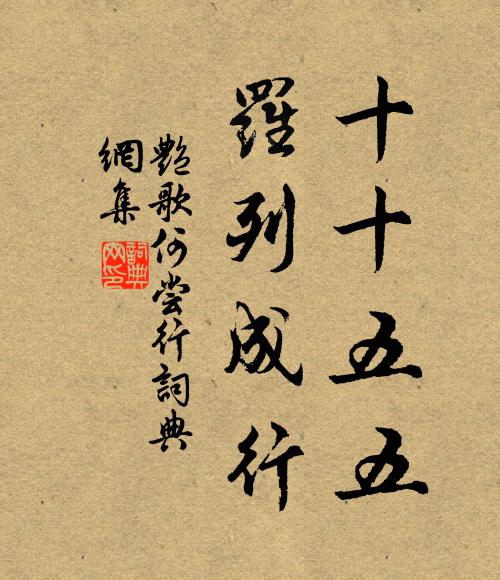 十十五五
羅列成行
艷歌何嘗行詞典
網集
詞典網印